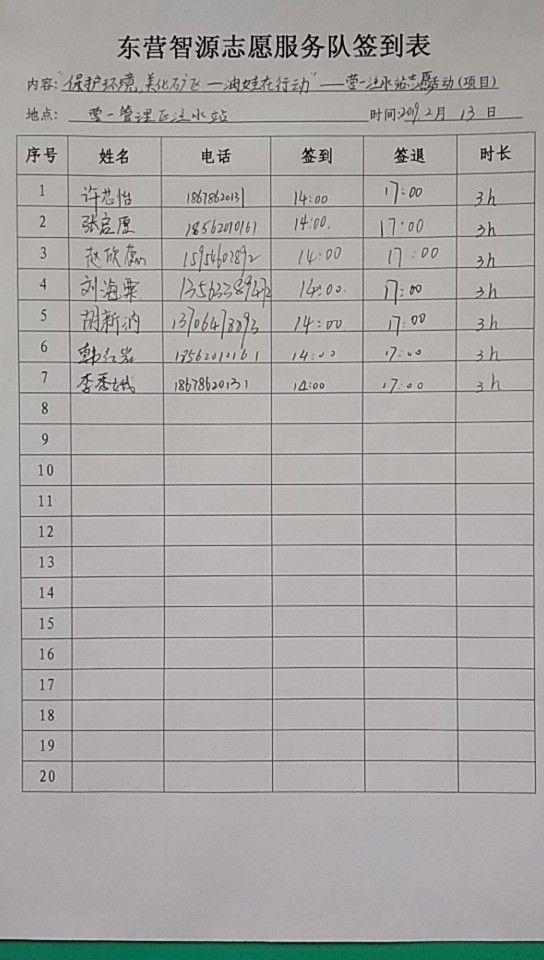 东营智源志愿服务队签到表
内容:"保护环境,美化矿区—油娃在行动"——营一注水站志愿活动(项目)
地点: 营一管理区注水站 时间:2019年2月13日
序号 姓名 电话 签到 签退 时长
1 许芯怡 18678620131 14:00 17:00 3h
2 张启愿 18562010161 14:00. 17:00 3h
3 赵欣 15954602892 14:00 17:00 3h
4 刘海粟 14:00. 17:00 3h
5 胡新 14:00 17:00 3h
6 韩 18562010161 14:00 17:00 3h
7 李 18678620131 14:00 17:00 3h
8
9
10
11
12
13
14
15
16
17
18
19
20